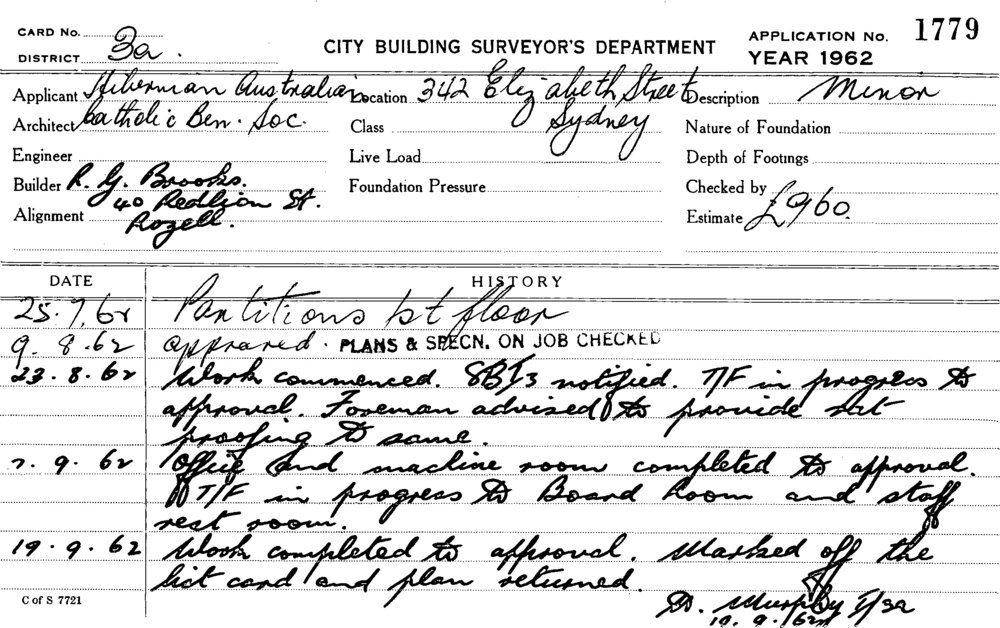 CARD No.
DISTRICT 3a.
CITY BUILDING SURVEYOR'S DEPARTMENT
APPLICATION No. 1779
YEAR 1962
Applicant Hibernian Australian Location 342 Elizabeth Street Description Minor
Architect Catholic Ben. Soc. Class Sydney Nature of Foundation
Engineer Live Load Depth of Footings
Builder R. G. Brooks. Foundation Pressure Checked by
40 Redlion St. Estimate £960.
Alignment Rozell.
DATE HISTORY
25.7.62 Partitions 1st floor
9.8.62 approved. PLANS & SPECN. ON JOB CHECKED
23.8.62 Work commenced. notified. T/F in progress to
approval. Foreman advised to provide rat
proofing to same.
7.9.62 Office and machine room completed to approval.
T/F in progress to Board Room and staff
rest room.
19.9.62 Work completed to approval. Marked off the
list card and plan returned.
C of S 7721
D. Murphy I/3a
19.9.62